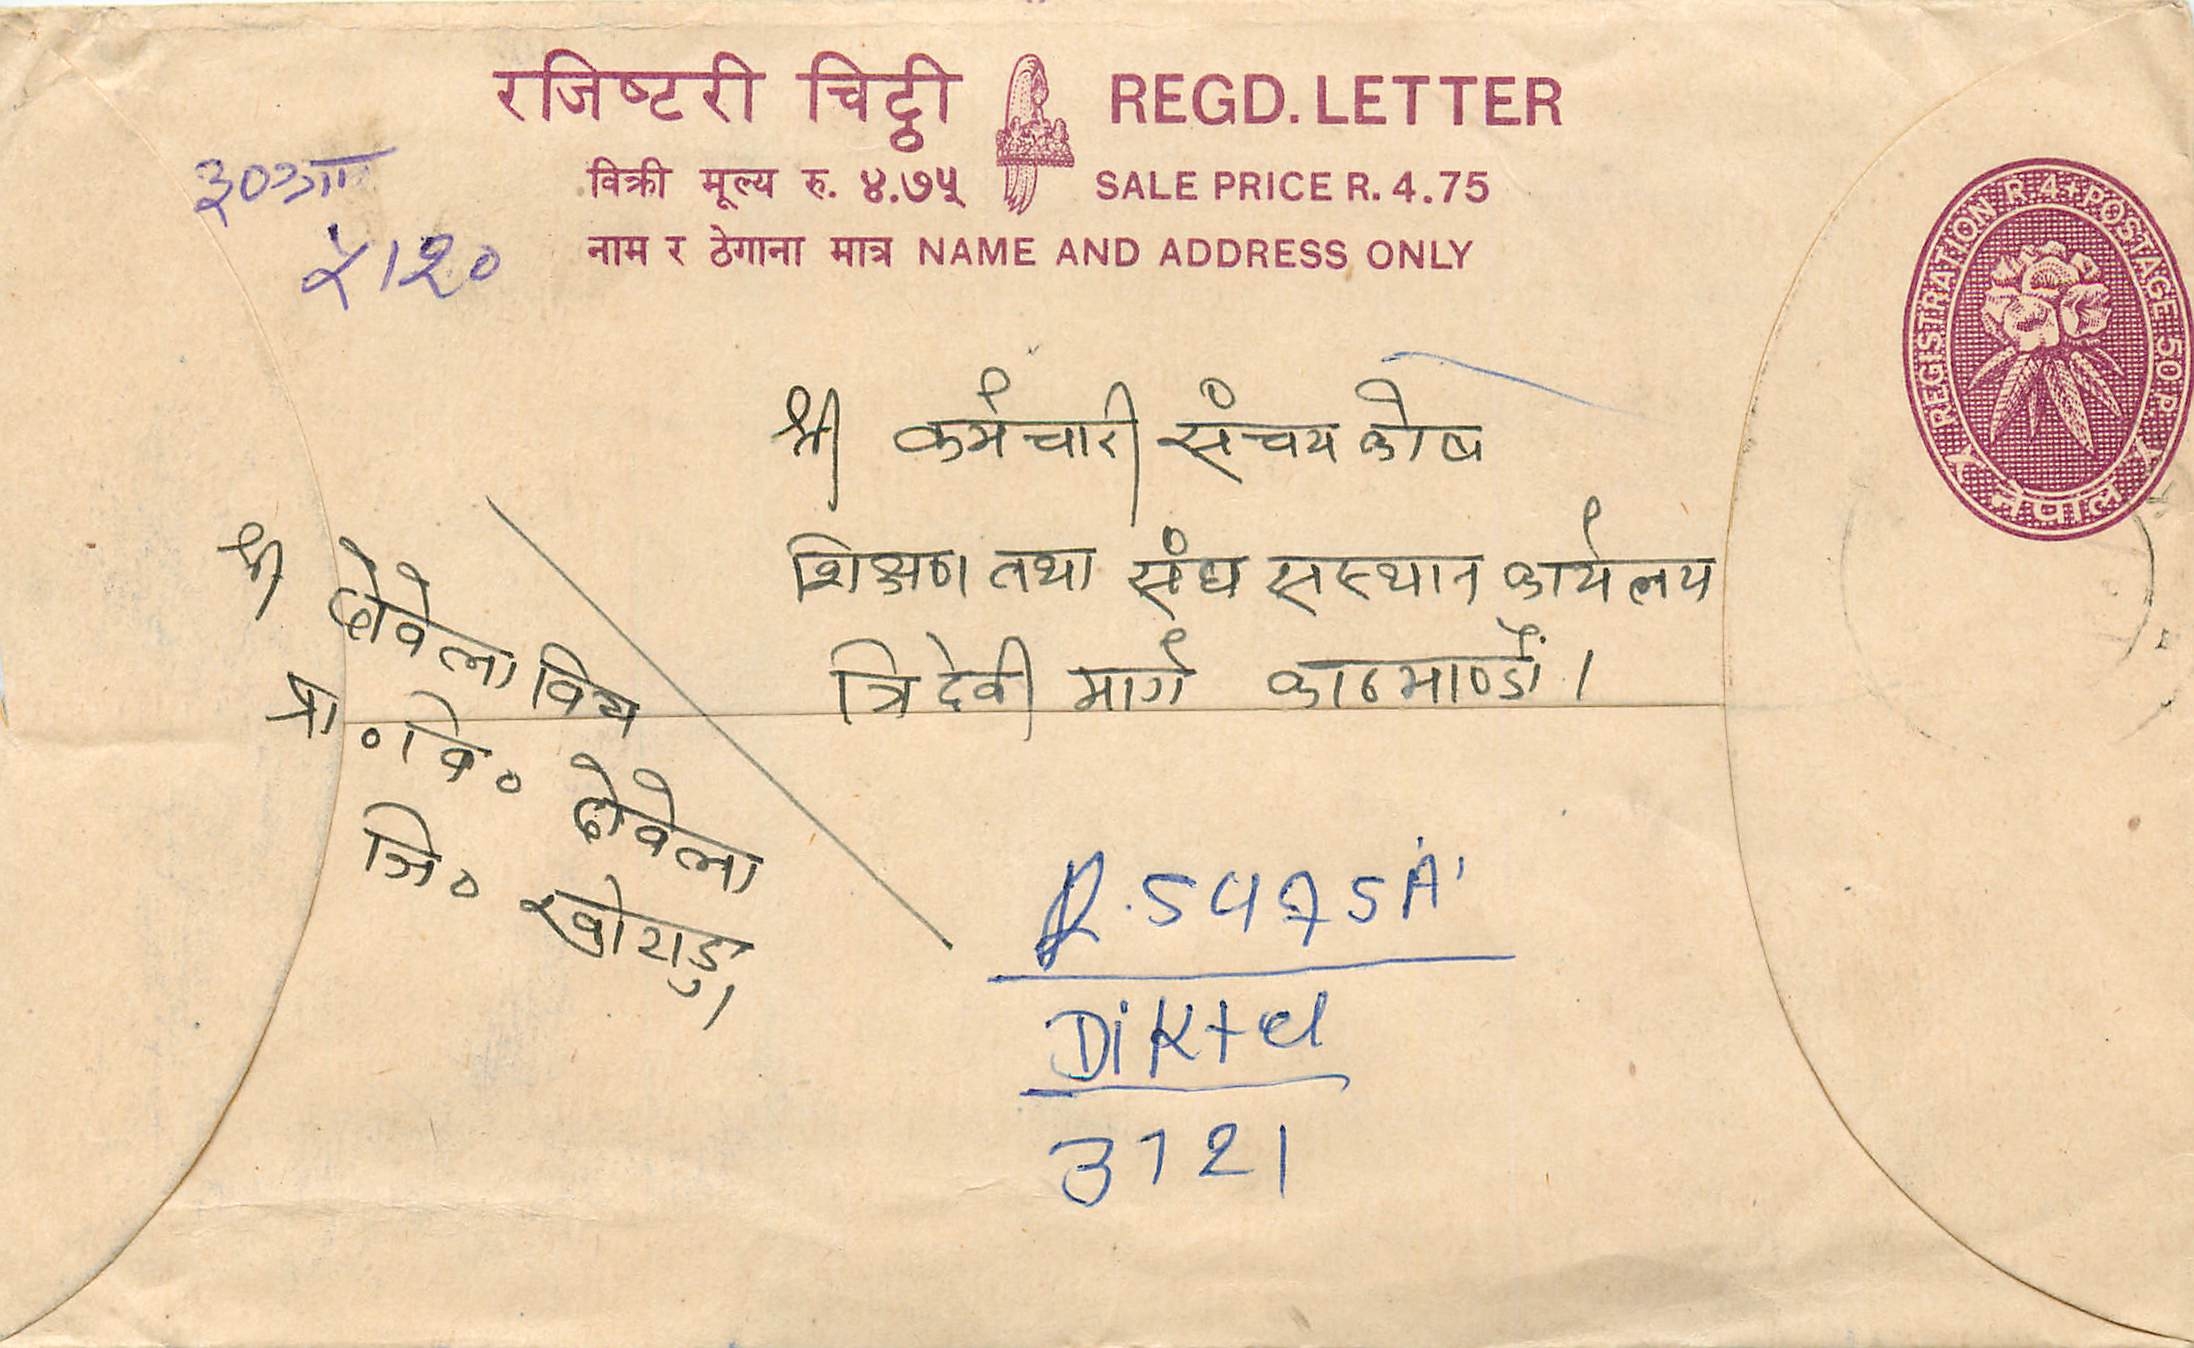 रजिष्टरी चिट्ठी REGD. LETTER
विक्री मूल्य रु. ४.७५ SALE PRICE R. 4.75
नाम र ठेगाना मात्र NAME AND ADDRESS ONLY
REGISTRATION R. 4+POSTAGE 50 P.
नेपाल
५।२०
श्री कर्मचारी संचय कोष
शिक्षण तथा संघ सस्थान कार्यलय
त्रिदेवी मार्ग काठमाण्डौं।
श्री
प्रा०वि०
जि०
Diktel
3721